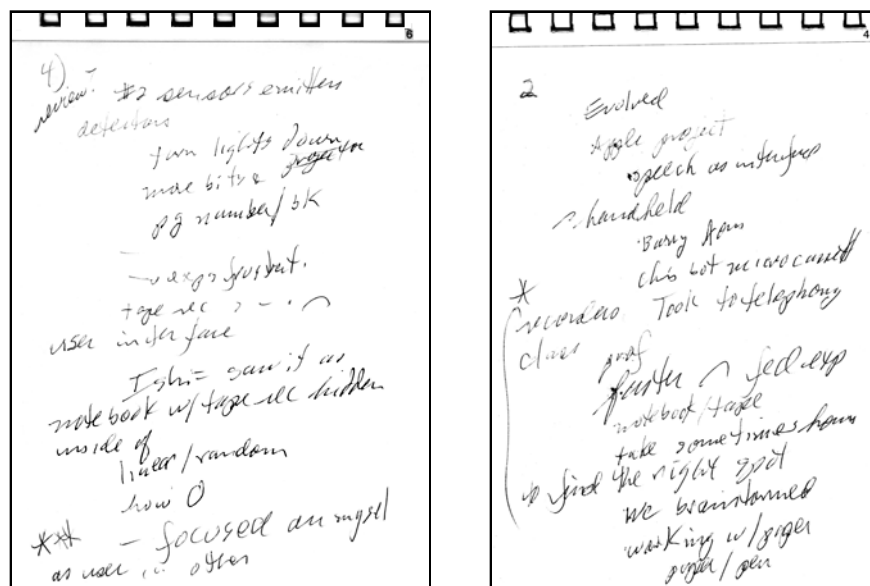 6
4)
review:
#2 sensors emitters
detectors
turn lights down
more bits &
pg number/bk
tape rec
user interface
Ishii saw it as
notebook w/tape rec hidden
inside of
linear/random
how
*** – focused on myself
as user other
4
2
Evolved
Apple project
speech as interface
handheld
Barry Arons
microcassett
*
recorders Took to telephony
class
prof
faster fed exp
notebook/tape
take sometimes hours
to find the right spot
we brainstormed
working w/
paper/pen